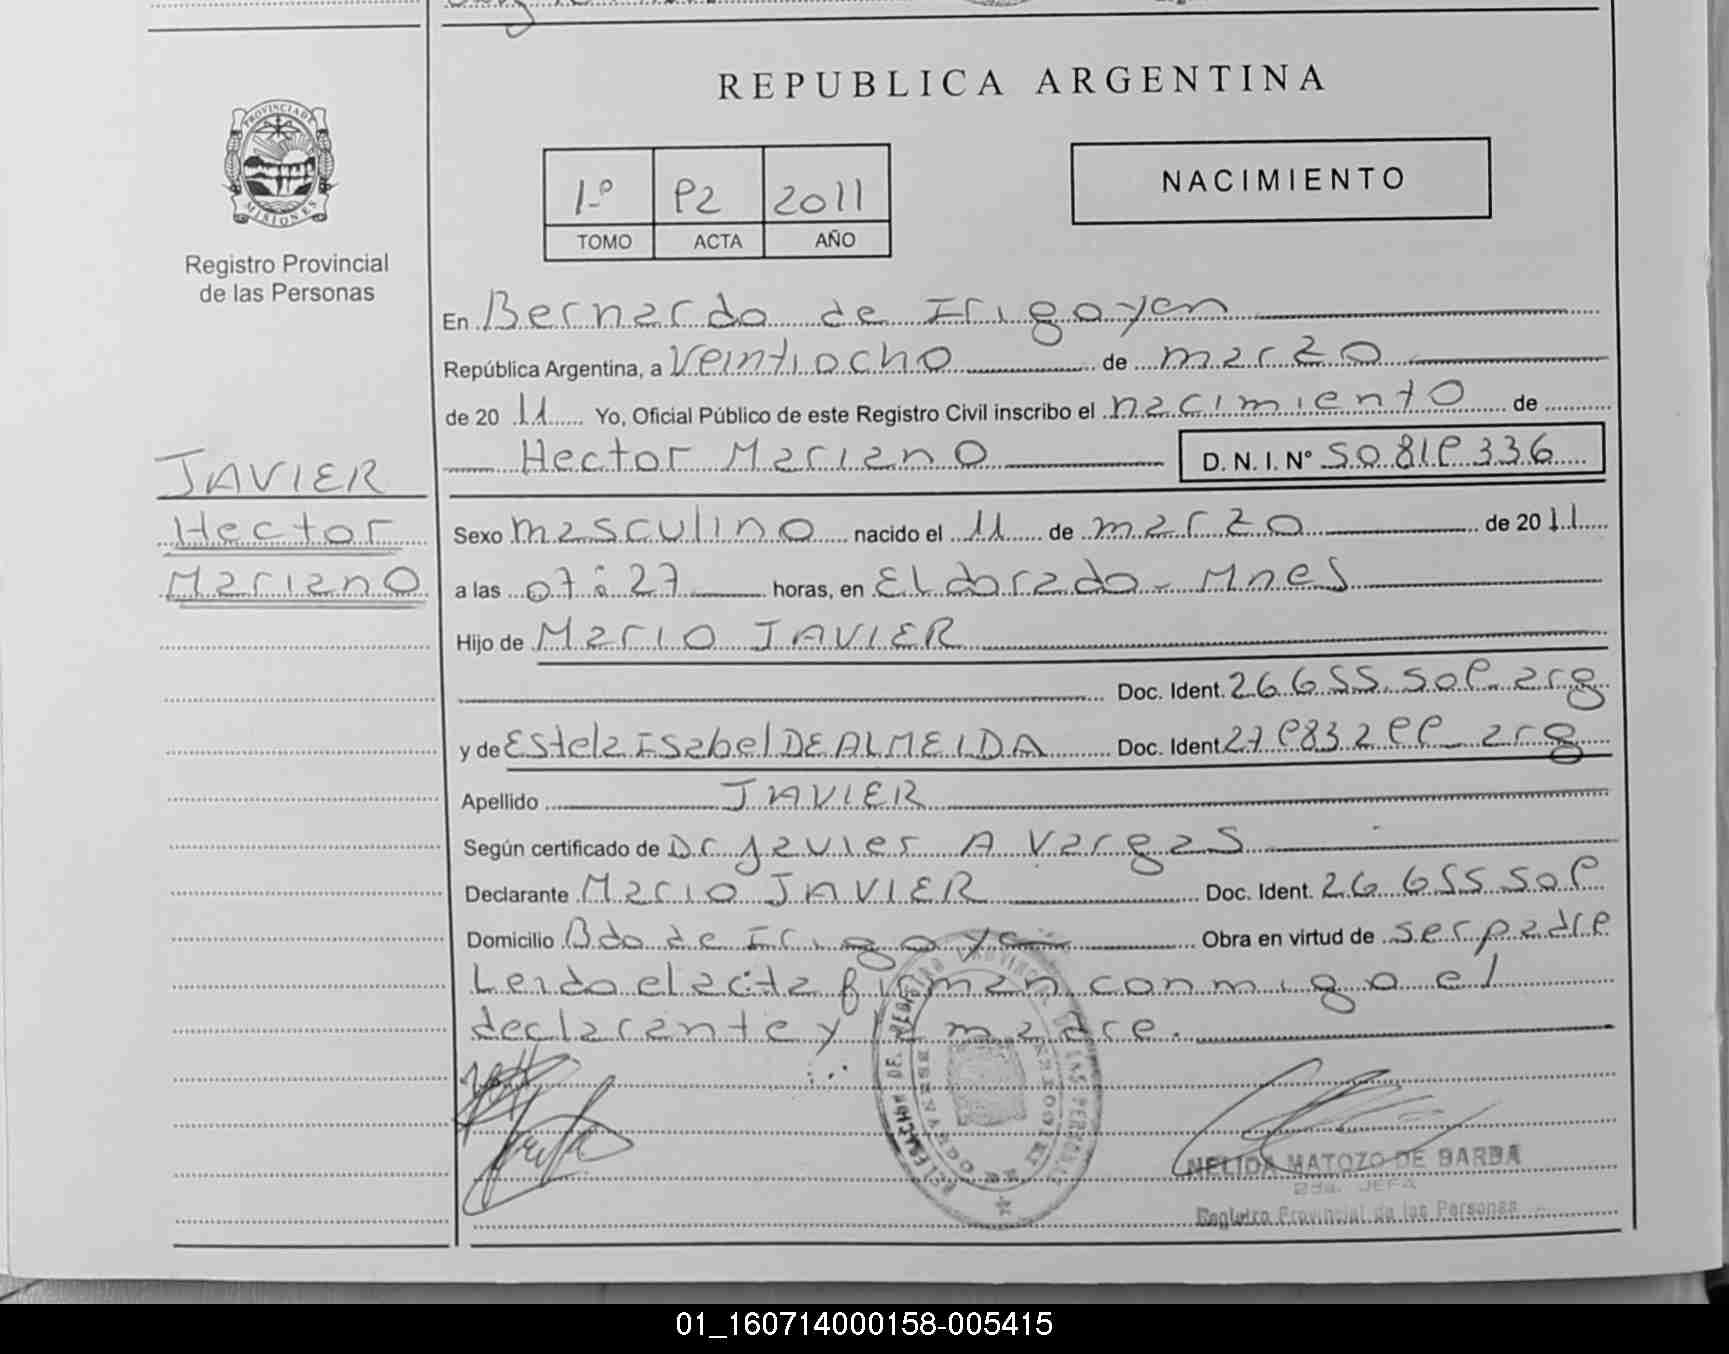 REPUBLICA ARGENTINA
PROVINCIA DE
MISIONES
Registro Provincial
de las Personas
1º 92 2011
TOMO ACTA AÑO
NACIMIENTO
En Bernardo de Irigoyen
República Argentina, a Veintiocho de marzo
de 20 11 Yo, Oficial Público de este Registro Civil inscribo el nacimiento de
Hector Mariano D. N. I. Nº 50.819.336
JAVIER
Hector
Mariano
Sexo masculino nacido el 11 de marzo de 2011
a las 07:27 horas, en Eldorado - Mnes
Hijo de Mario JAVIER
Doc. Ident. 26.655.509 arg
y de Estela Isabel DE ALMEIDA Doc. Ident. 27 983299 arg
Apellido JAVIER
Según certificado de Dr Javier A Vargas
Declarante Mario JAVIER Doc. Ident. 26 655 509
Domicilio Bdo de Irigoyen Obra en virtud de ser padre
Leida el acta firman conmigo el
declarante y la madre.
NELIDA MATOZO DE BARBA
2da. JEFA
Registro Provincial de las Personas
01_160714000158-005415